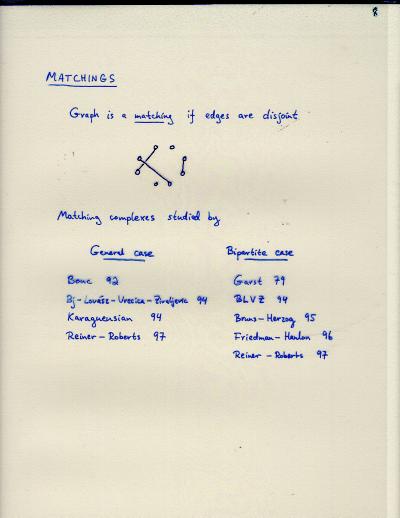 8
MATCHINGS
Graph is a matching if edges are disjoint
Matching complexes studied by
General case
Bouc 92
Bj-Lovász-Vrecica-Zivaljevic 94
Karaguensian 94
Reiner-Roberts 97
Bipartite case
Garst 79
BLVZ 94
Bruns-Herzog 95
Friedman-Hanlon 96
Reiner-Roberts 97